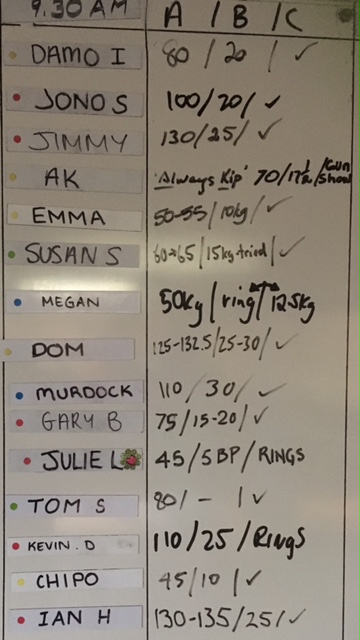 9.30 AM A / B / C
DAMO I 80 / 20 / ✓
JONO S 100/20/ ✓
JIMMY 130/25/ ✓
AK 'Always Kip' 70/17½/Gun Show
EMMA 50-55/10kg/✓
SUSAN S 60→65/15kg tried/✓
MEGAN 50kg/ring/12.5kg
DOM 125-132.5/25-30/✓
MURDOCK 110 / 30 / ✓
GARY B 75/15-20/✓
JULIE L 45/5BP/RINGS
TOM S 80/ - / ✓
KEVIN.D 110/25/Rings
CHIPO 45/10/✓
IAN H 130-135/25/✓